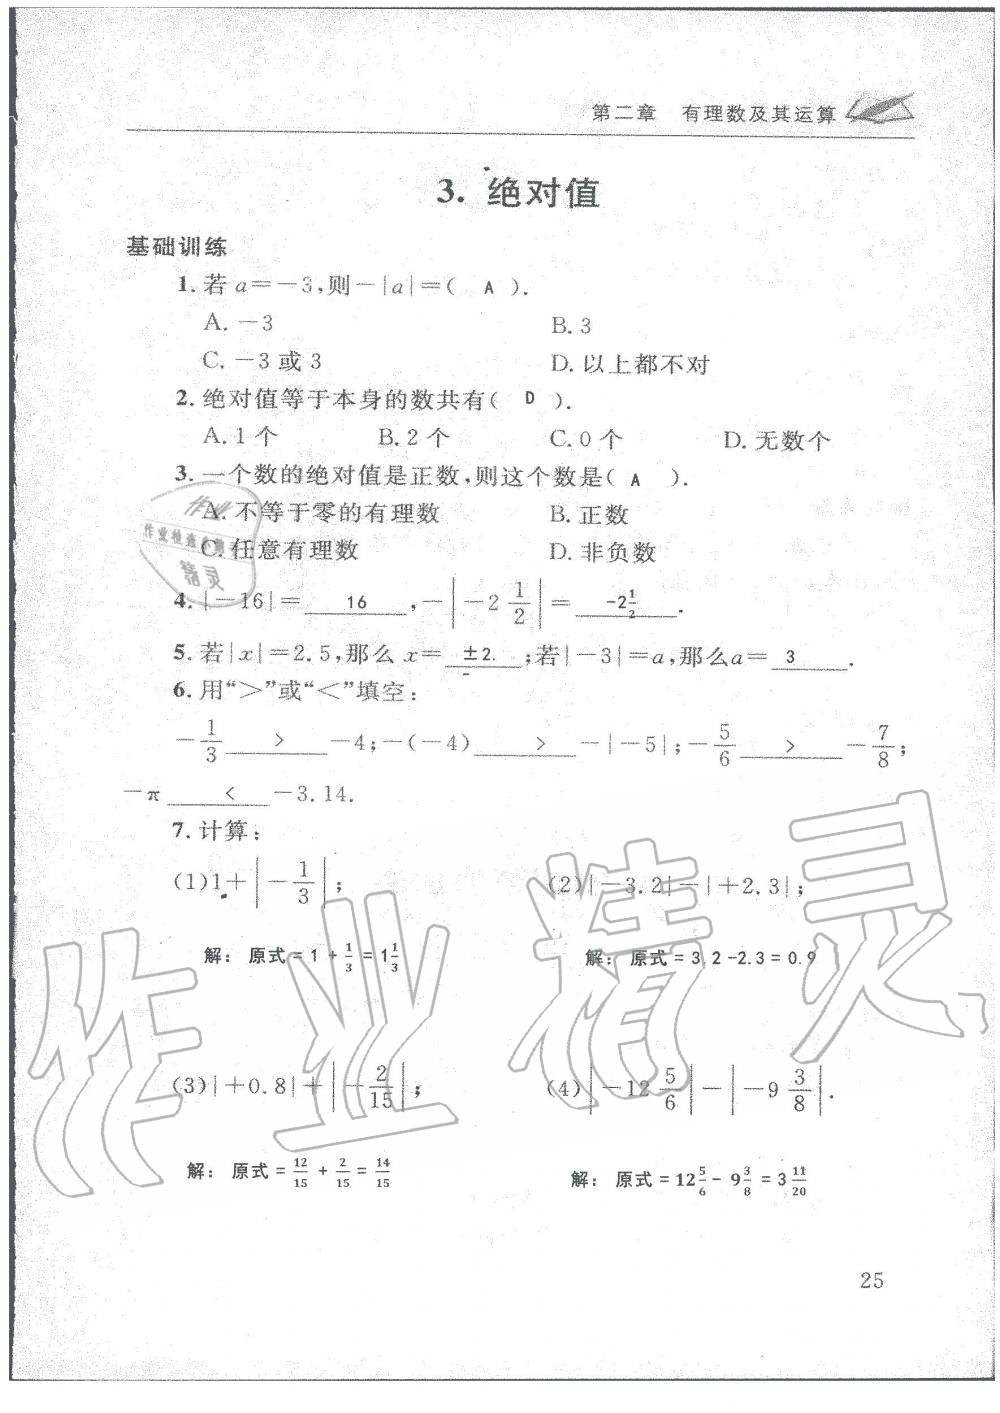 第二章 有理数及其运算
3. 绝对值
基础训练
1. 若 a=-3,则-|a|=( A ).
A. -3 B. 3
C. -3 或 3 D. 以上都不对
2. 绝对值等于本身的数共有( D ).
A. 1 个 B. 2 个 C. 0 个 D. 无数个
3. 一个数的绝对值是正数,则这个数是( A ).
A. 不等于零的有理数 B. 正数
C. 任意有理数 D. 非负数
4. |-16|= 16 ,-|-2 1/2|= -2 1/2 .
5. 若|x|=2.5,那么 x= ±2. ;若|-3|=a,那么a= 3 .
6. 用“>”或“<”填空:
-1/3 > -4;-(-4) > -|-5|;-5/6 > -7/8;
-π < -3.14.
7. 计算:
(1)1+|-1/3|; (2)|-3.2|-|+2.3|;
解: 原式=1+1/3=1 1/3 解: 原式=3.2-2.3=0.9
(3)|+0.8|+|-2/15|; (4)|-12 5/6|-|-9 3/8|.
解: 原式=12/15+2/15=14/15 解: 原式=12 5/6-9 3/8=3 11/20
25
作业检查小精灵
作业精灵